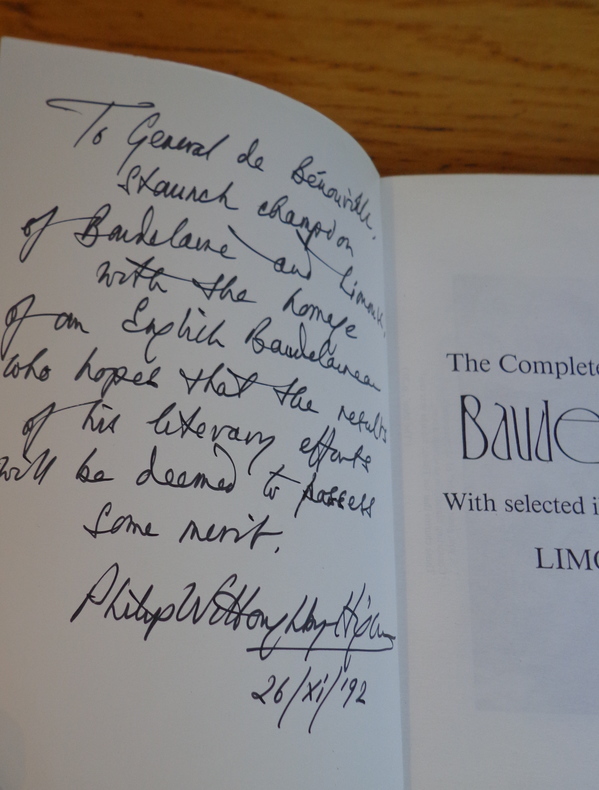 To General de Bénouville,
staunch champion
of Baudelaire and Limouse,
with the homage
of an English Baudelairean
who hopes that the results
of his literary efforts
will be deemed to possess
some merit.
Philip Willoughby-Higson
26/XI/'92
The Complete
Baude
With selected i
LIMO